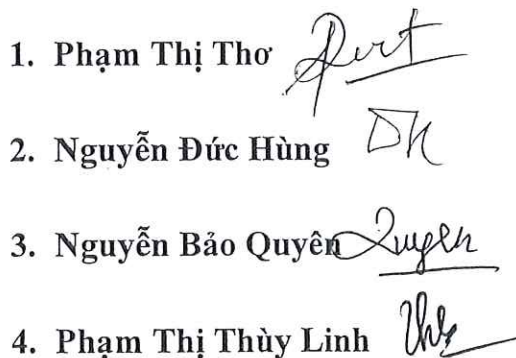 1. Phạm Thị Thơ
2. Nguyễn Đức Hùng
3. Nguyễn Bảo Quyên Quyen
4. Phạm Thị Thùy Linh